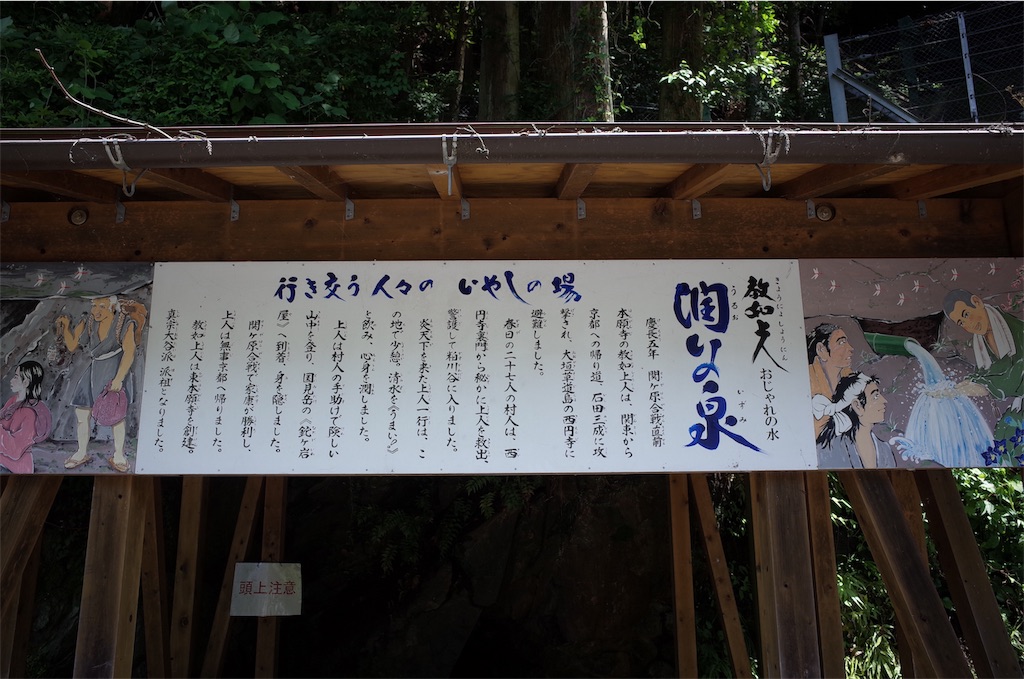 教如上人 おじゃれの水
潤いの泉
行き交う人々の いやしの場
慶長五年 関ヶ原合戦直前
本願寺の教如上人は、関東から
京都への帰り道、石田三成に攻
撃され、大垣草道島の西円寺に
避難しました。
春日の二十七人の村人は、西
円寺裏門から秘かに上人を救出、
警護して粕川谷へ入りました。
炎天下を来た上人一行は、こ
の地で少憩。清水を《うまい》
と飲み、心身を潤しました。
上人は村人の手助けで険しい
山中を登り、国見岳の《鉈ヶ岩
屋》へ到着、身を隠しました。
関ヶ原合戦で家康が勝利し、
上人は無事京都へ帰りました。
教如上人は東本願寺を創建。
真宗大谷派 派祖となりました。
頭上注意